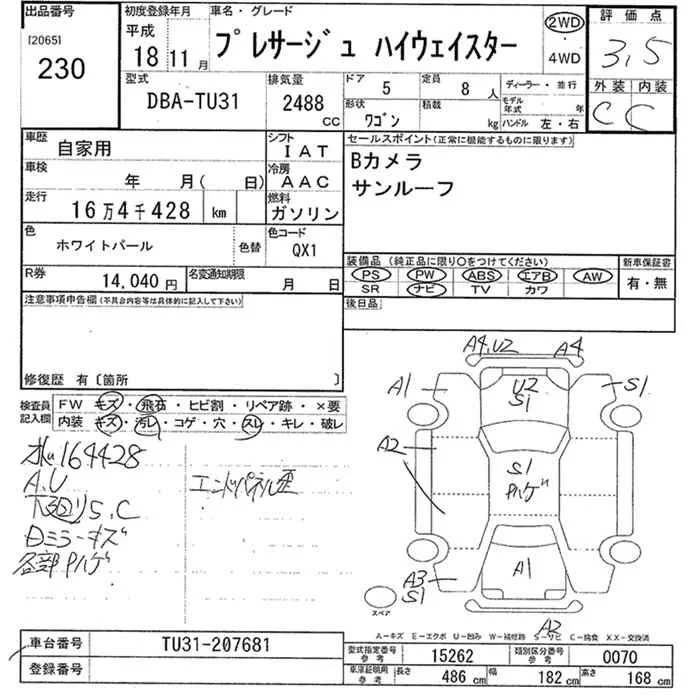 出品番号
[2065]
230
初度登録年月
平成 18 11 月
車名・グレード
プレサージュ ハイウェイスター
2WD
4WD
評価点
3,5
外装 内装
C C
型式
DBA-TU31
排気量
2488 CC
ドア 5
定員 8 人
形状 ワゴン
積載 kg
ディーラー・並行
モデル年式 年
ハンドル 左・右
車歴 自家用
シフト IAT
車検 年 月( 日)
冷房 AAC
走行 16万4千428 km
燃料 ガソリン
色 ホワイトパール 色替
色コード QX1
R券 14,040 円
名変通知期限 月 日
セールスポイント(正常に機能するものに限ります)
Bカメラ
サンルーフ
装備品(純正品に限り○をつけてください)
PS PW ABS エアB AW
SR ナビ TV カワ
新車保証書
有・無
後日品
注意事項申告欄(不具合内容等は具体的に記入して下さい)
修復歴 有〔箇所 〕
検査員記入欄
FW キズ・飛石・ヒビ割・リペア跡・×要
内装 キズ・汚レ・コゲ・穴・スレ・キレ・破レ
164428
A.U
下廻りS.C
Dミラーキズ
各部Pハゲ
エンドパネル歪
A4,U2 A4
A1 U2 S1 S1
A2
S1
Pハゲ
A3 S1
A1
A2
スペア
A−キズ E−エクボ U−凹み W−補修跡 S−サビ C−腐食 XX−交換済
車台番号 TU31-207681
登録番号
型式指定番号 参考 15262
類別区分番号 参考 0070
車庫証明用 参考 長さ 486 cm 幅 182 cm 高さ 168 cm